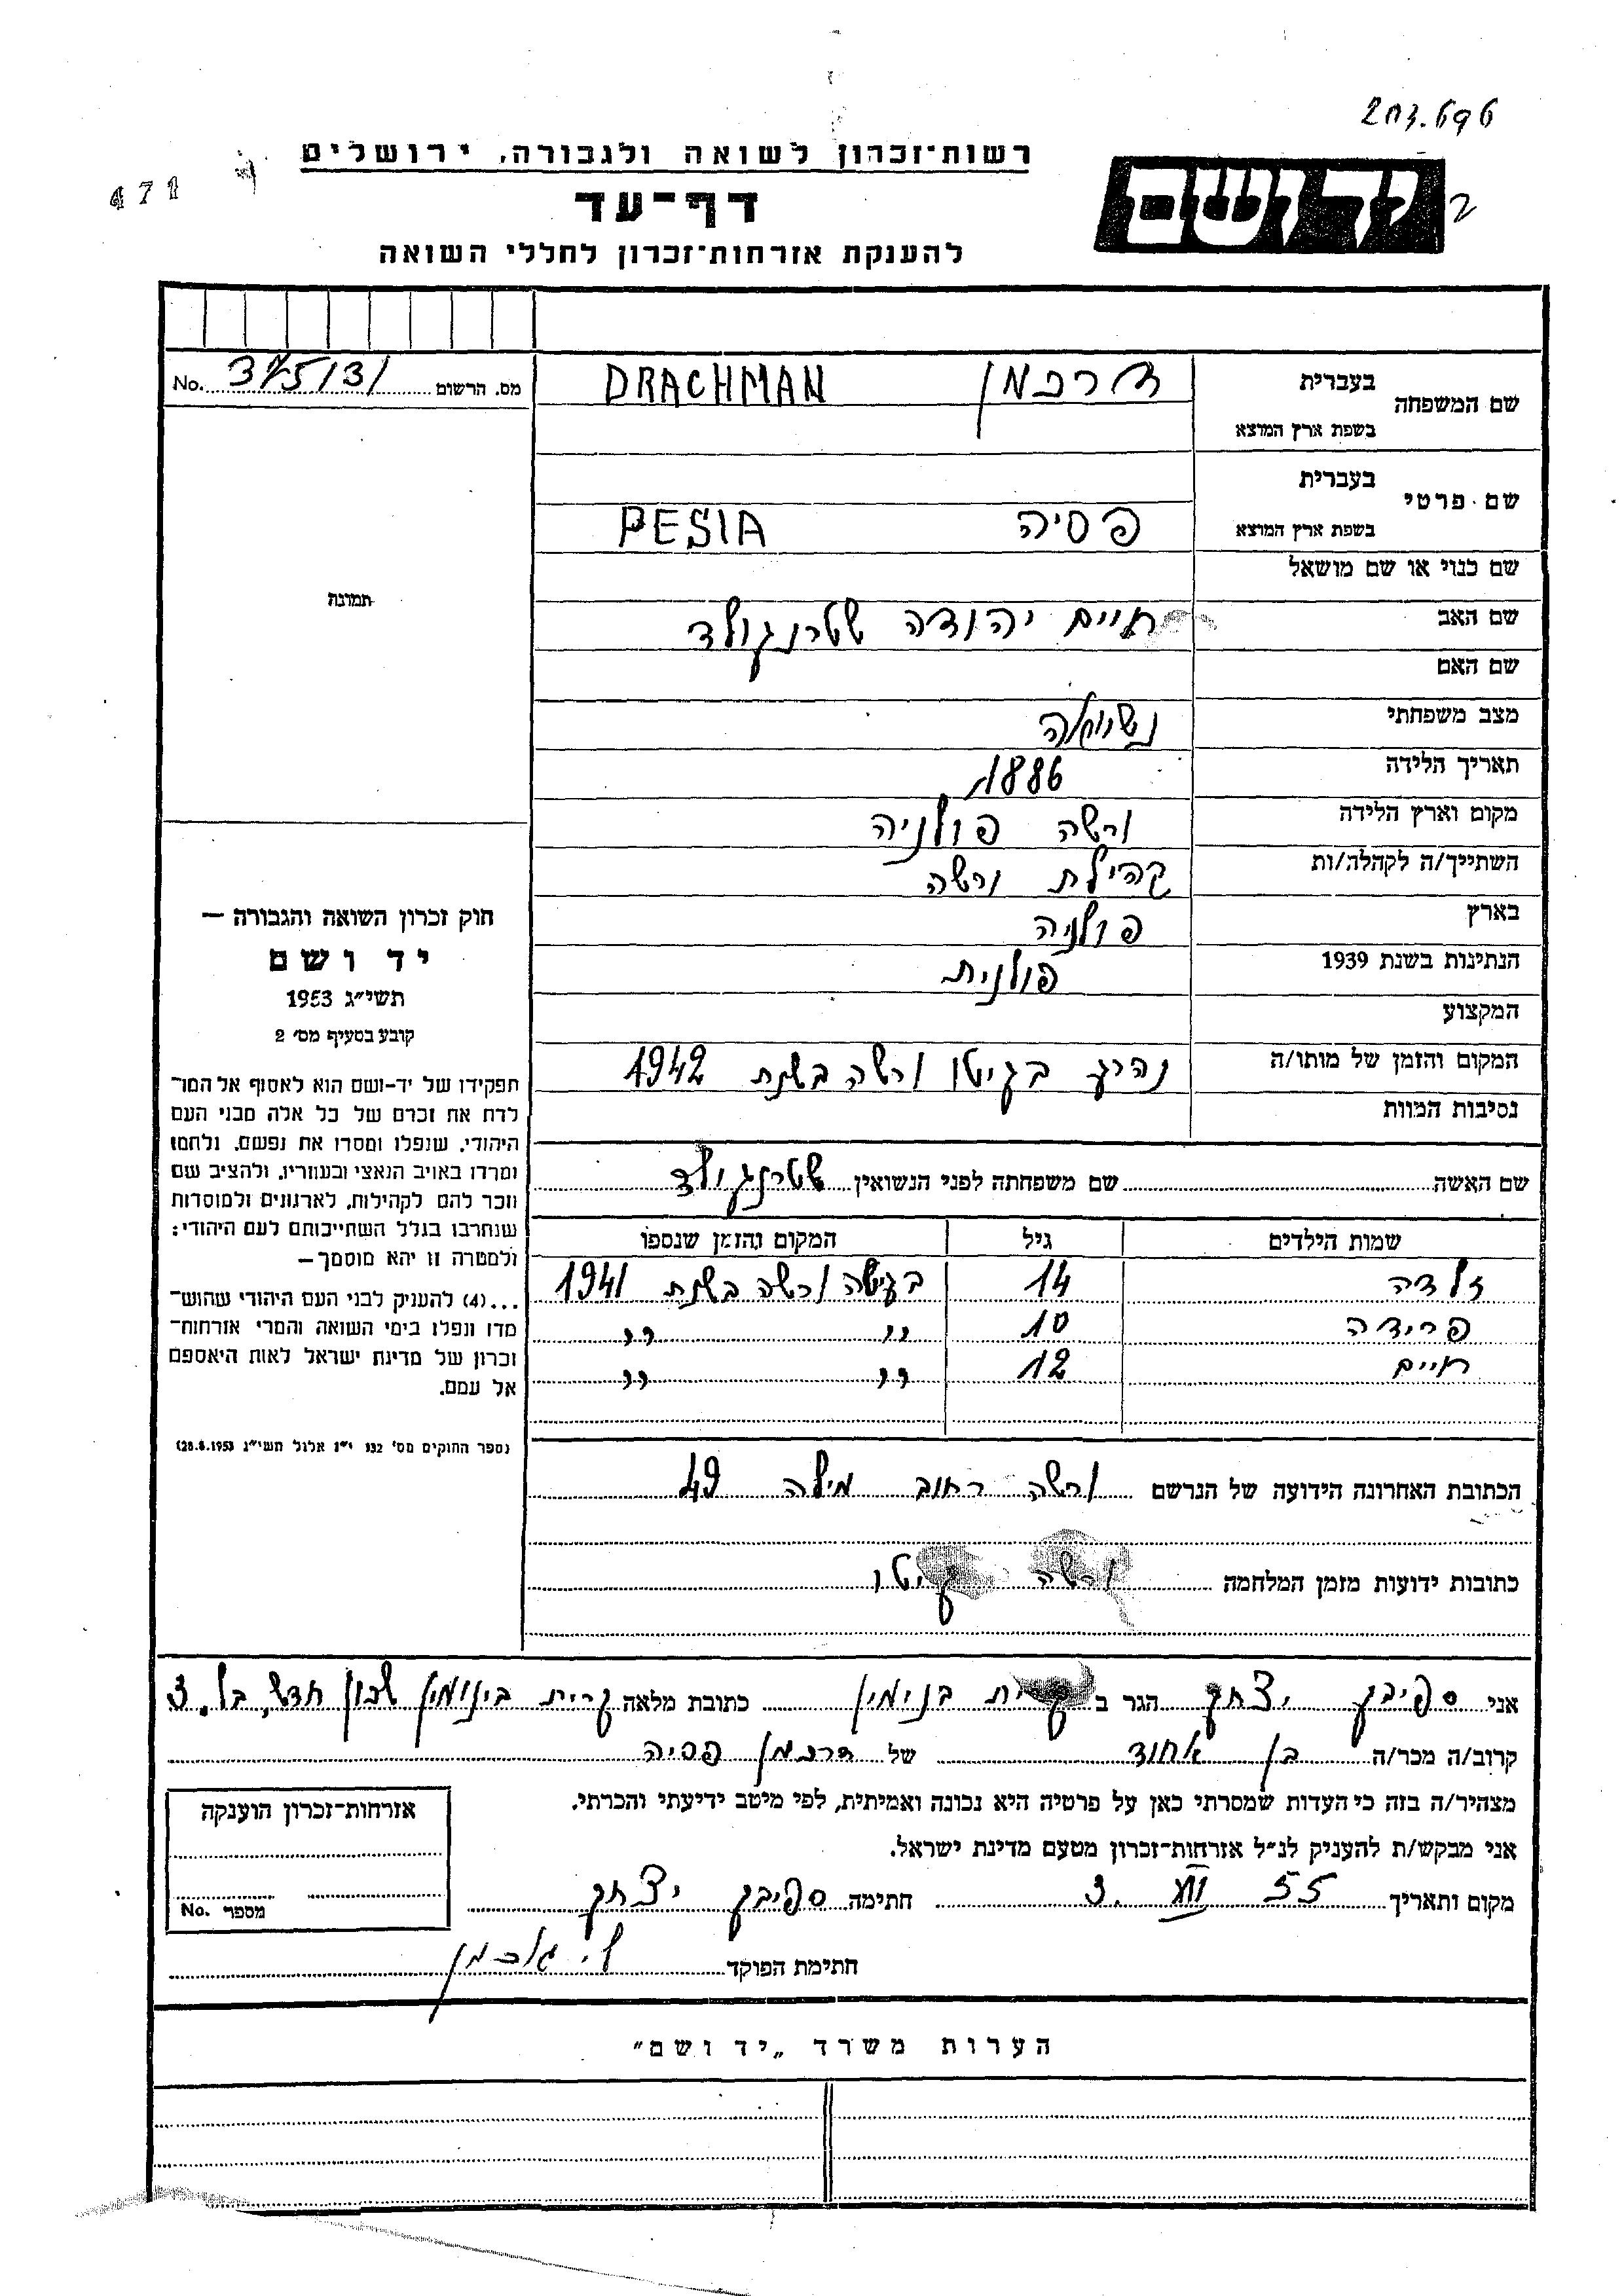 203.696
רשות־זכרון לשואה ולגבורה, ירושלים
471
דף־עד
להענקת אזרחות־זכרון לחללי השואה
יד ושם
2
שם המשפחה בעברית דרכמן DRACHMAN
בשפת ארץ המוצא
מס. הרשום 375/31 No.
שם פרטי בעברית
בשפת ארץ המוצא פסיה PESIA
שם כנוי או שם מושאל
תמונה
שם האב חיים יהודה שטרנגולד
שם האם
מצב משפחתי נשואה
תאריך הלידה 1886
מקום וארץ הלידה ורשה פולניה
השתייך/ה לקהלה/ות קהילת ורשה
בארץ פולניה
הנתינות בשנת 1939 פולנית
המקצוע
המקום והזמן של מותו/ה נהרג בגיטו ורשה בשנת 1942
נסיבות המוות
חוק זכרון השואה והגבורה —
יד ושם
תשי״ג 1953
קובע בסעיף מס׳ 2
תפקידו של יד-ושם הוא לאסוף אל המו־
לדת את זכרם של כל אלה מבני העם
היהודי, שנפלו ומסרו את נפשם, נלחמו
ומרדו באויב הנאצי ובעוזריו, ולהציב שם
וזכר להם לקהילות, לארגונים ולמוסדות
שנחרבו בגלל השתייכותם לעם היהודי;
ולמטרה זו יהא מוסמך—
...(4) להעניק לבני העם היהודי שהוש־
מדו ונפלו בימי השואה והמרי אזרחות־
זכרון של מדינת ישראל לאות היאספם
אל עמם.
(ספר החוקים מס׳ 132 י״ז אלול תשי״ג 28.8.1953)
שם האשה שם משפחתה לפני הנשואין שטרנגולד
שמות הילדים גיל המקום והזמן שנספו
זלדה 14 בגיטה ורשה בשנת 1941
פרידה 10 ״ ״
חיים 12 ״ ״
הכתובת האחרונה הידועה של הנרשם ורשה רחוב מילה 49
כתובות ידועות מזמן המלחמה ורשה גיטו
אני ספיבק יצחק הגר ב קרית בנימין כתובת מלאה קרית בינימין שכון חדש, בל. 3
קרוב/ה מכר/ה בן אחוד של דרכמן פסיה
מצהיר/ה בזה כי העדות שמסרתי כאן על פרטיה היא נכונה ואמיתית, לפי מיטב ידיעתי והכרתי.
אני מבקש/ת להעניק לנ״ל אזרחות־זכרון מטעם מדינת ישראל.
מקום ותאריך 3. VII 55 חתימה ספיבק יצחק
חתימת הפוקד
אזרחות־זכרון הוענקה
מספר No.
הערות משרד „יד ושם״